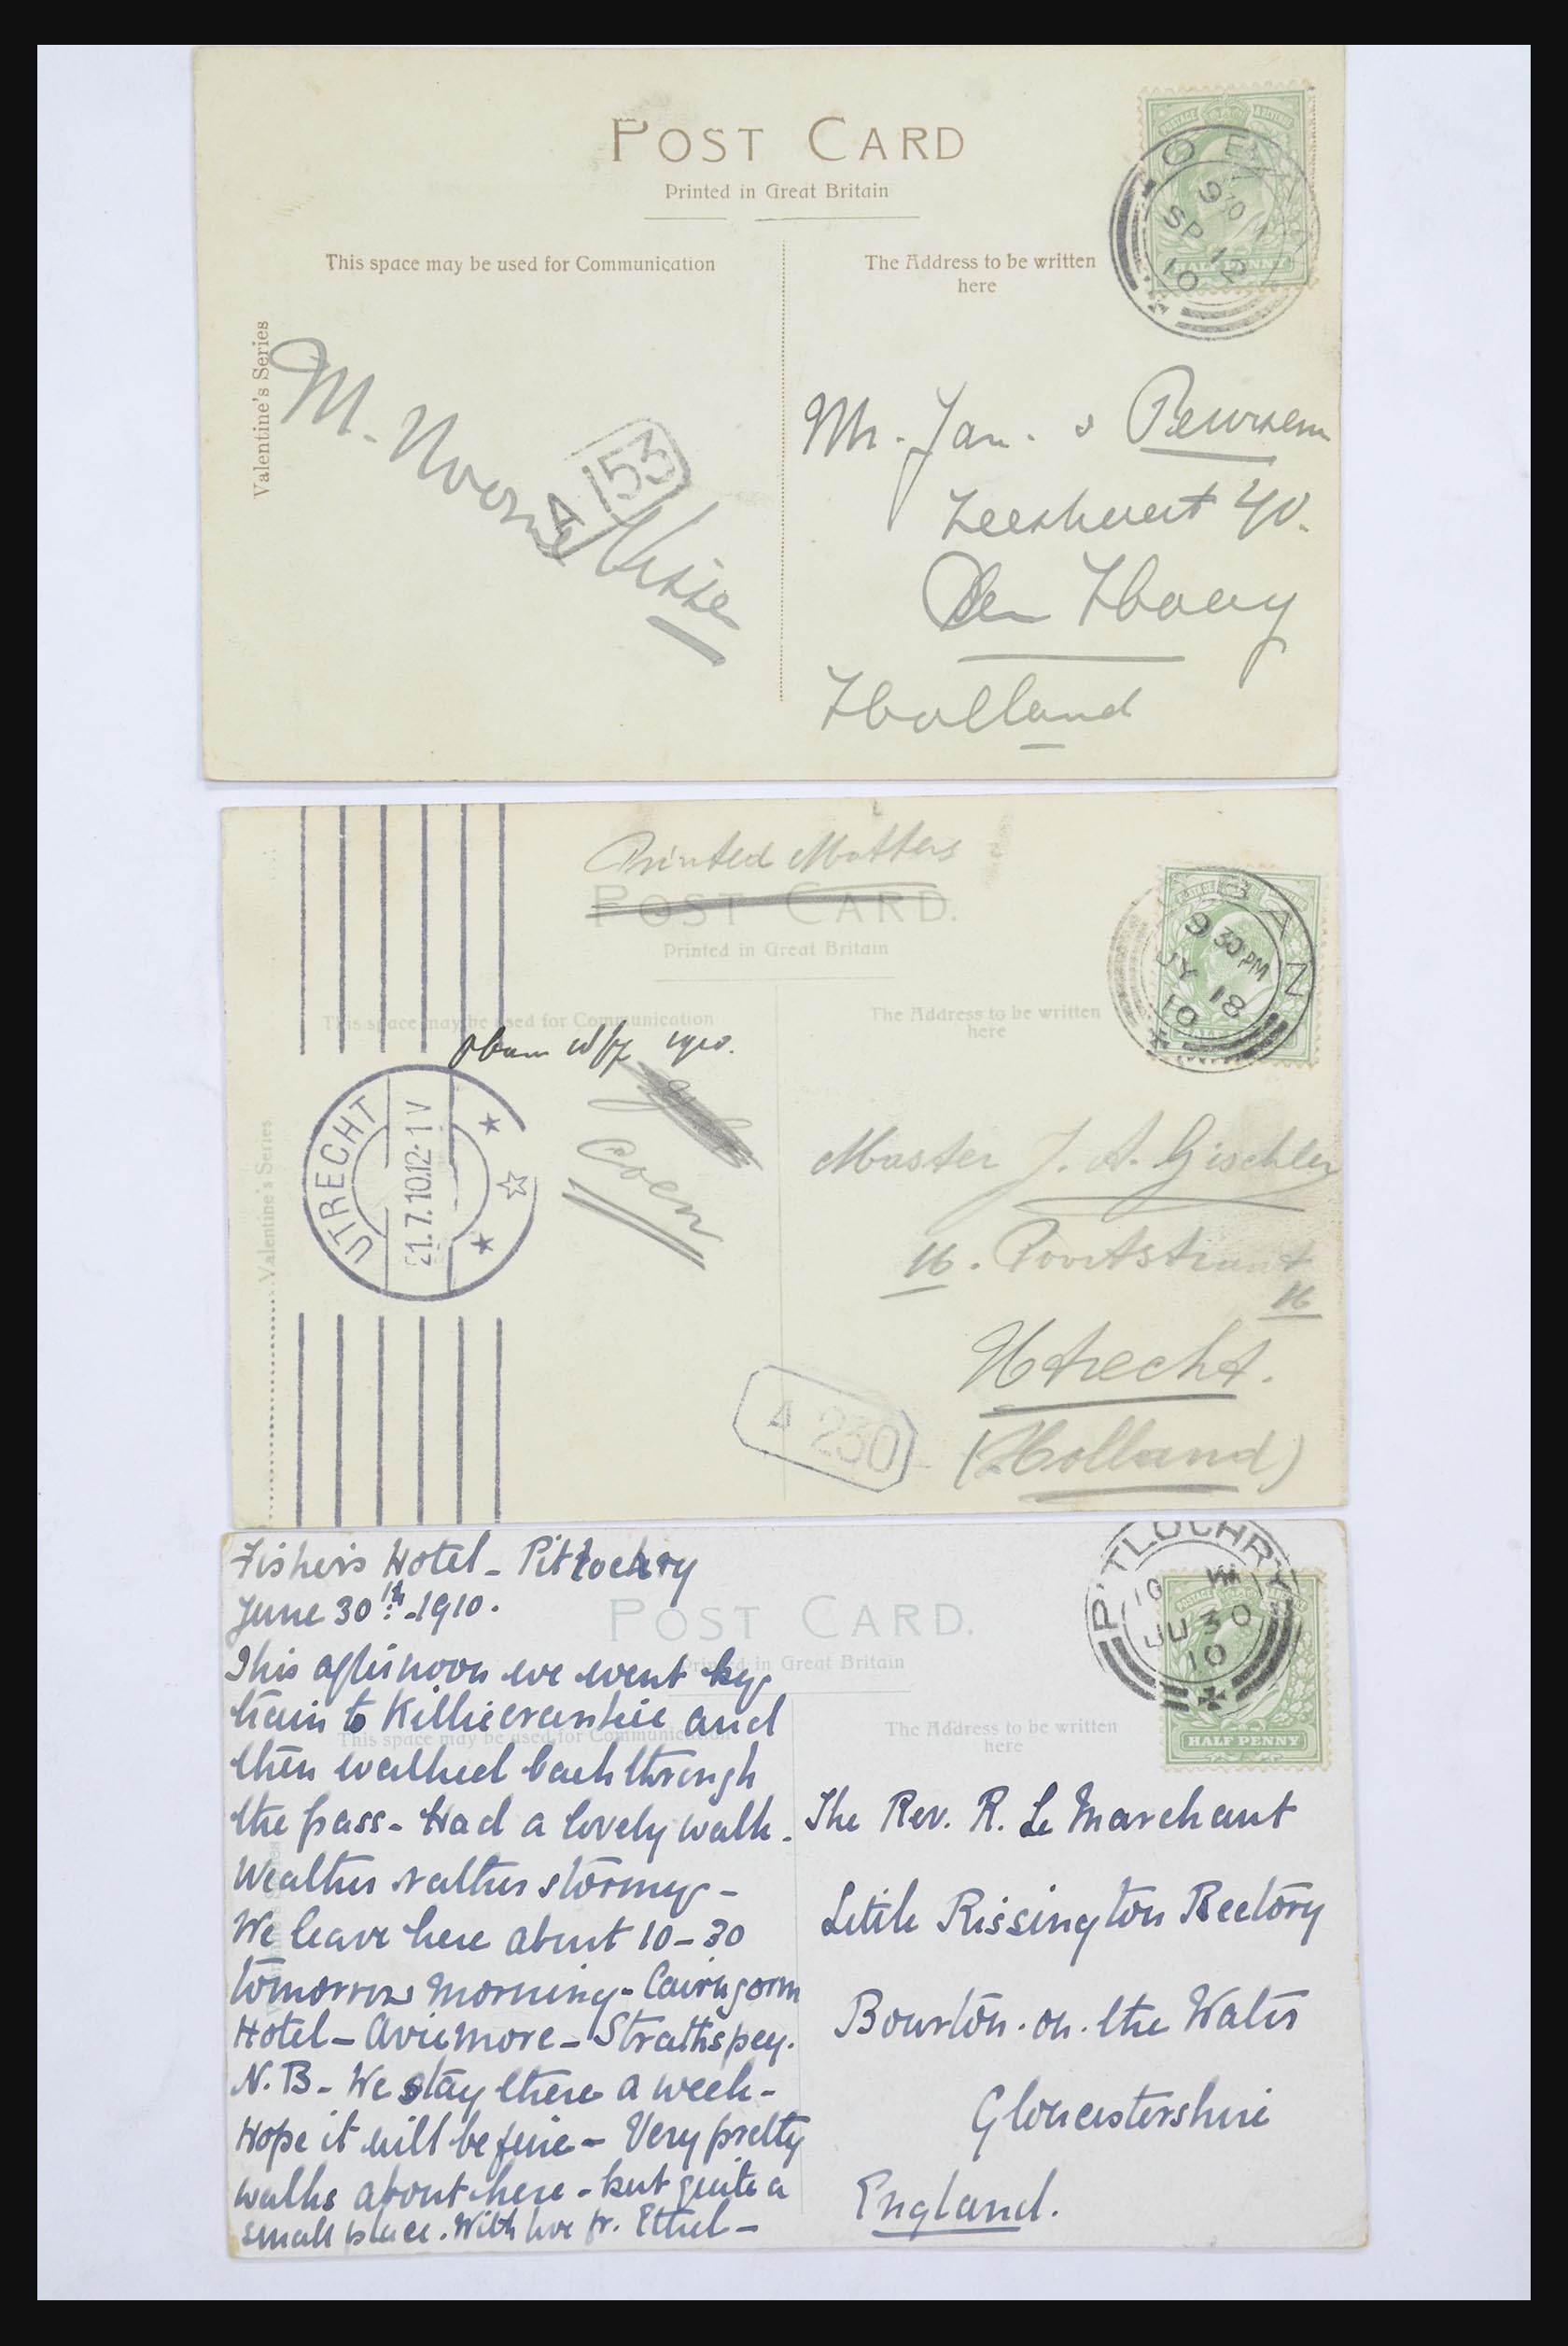 POST CARD
Printed in Great Britain
This space may be used for Communication
The Address to be written
here
Valentine's Series
9 30
SP 12
10
HALF PENNY
M.
A 53
Mr. Jan.
40.
Den Haag
Holland
Printed Matters
POST CARD.
Printed in Great Britain
This space may be used for Communication
The Address to be written
here
Valentine's Series
BAN
9 30 PM
JY 18
10
Oban 18/7 1910.
Coen
UTRECHT
21.7.10.12-1V
Master J. A. Gischler
16.
16
Utrecht.
(Holland)
A 230
PITLOCHRY
JU 30
10
HALF PENNY
POST CARD.
Printed in Great Britain
This space may be used for Communication
The Address to be written
here
Fishers Hotel - Pitlochry
June 30th - 1910.
This afternoon we went by
train to Killiecrankie and
then walked back through
the pass - Had a lovely walk -
Weather rather stormy -
We leave here about 10-30
tomorrow morning - Cairngorm
Hotel - Aviemore - Strathspey.
N.B - We stay there a week -
Hope it will be fine - Very pretty
walks about here - but quite a
small place. With love fr. Ethel -
The Rev. R. Le Marchant
Little Rissington Rectory
Bourton-on-the Water
Gloucestershire
England.